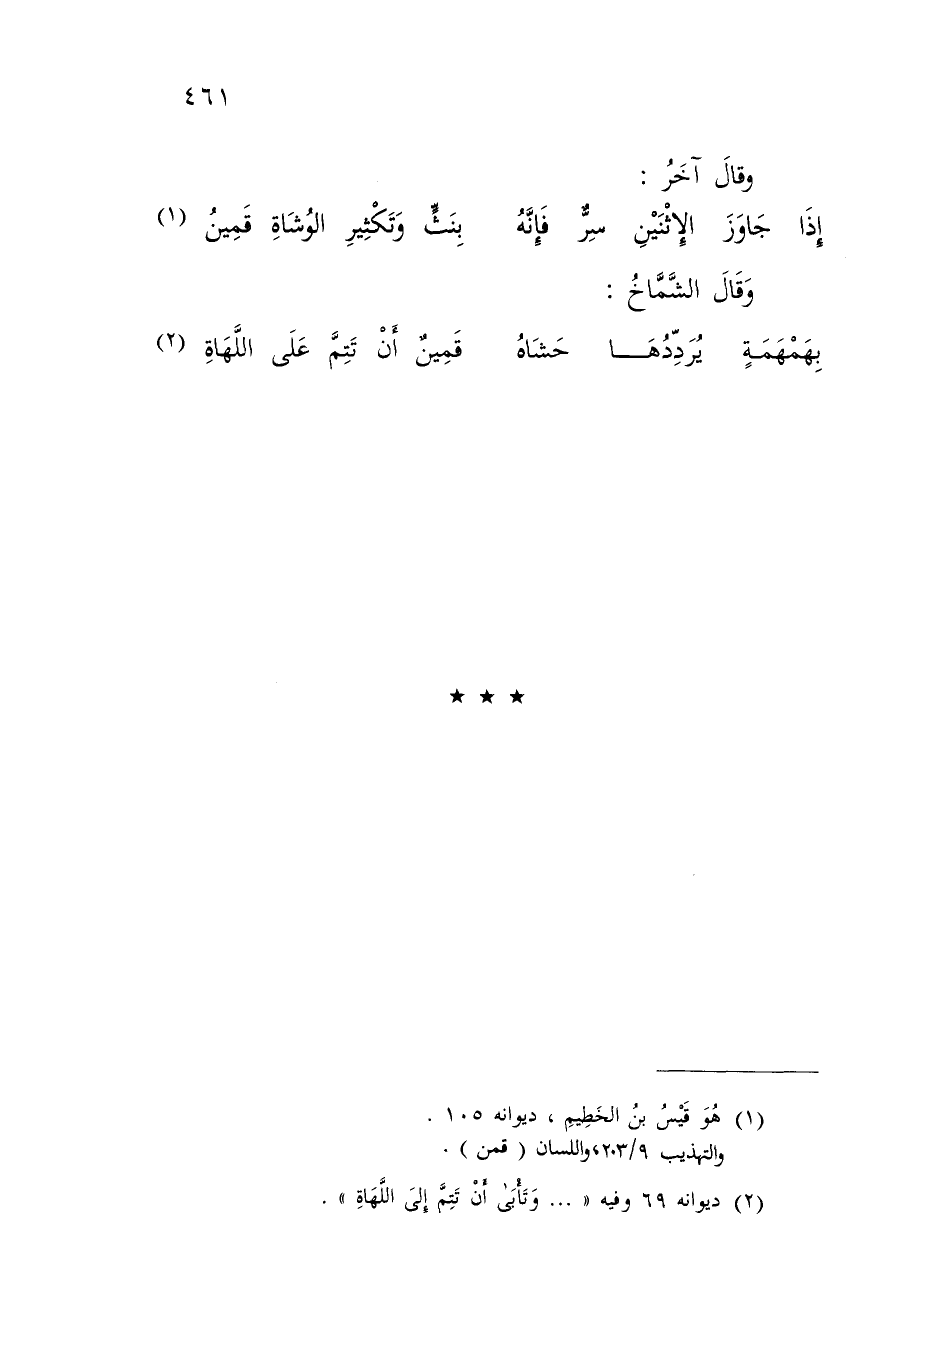 ٤٦١
وقالَ آخَرُ :
إِذَا جَاوَزَ الإِثْنَيْنِ سِرٌّ فَإِنَّهُ بِنَثٍّ وَتَكْثِيرِ الوُشَاةِ قَمِينُ (١)
وَقَالَ الشَّمَّاخُ :
بِهَمْهَمَةٍ يُرَدِّدُهَا حَشَاهُ قَمِينٌ أَنْ تَتِمَّ عَلَى اللَّهَاةِ (٢)
★ ★ ★
(١) هُوَ قَيْسُ بنُ الخَطِيمِ ، ديوانه ١٠٥ .
والتهذيب ٢٠٣/٩، واللسان ( قمن ) .
(٢) ديوانه ٦٩ وفيه « ... وَتَأْبَىٰ أَنْ تَتِمَّ إِلىَ اللَّهَاةِ » .